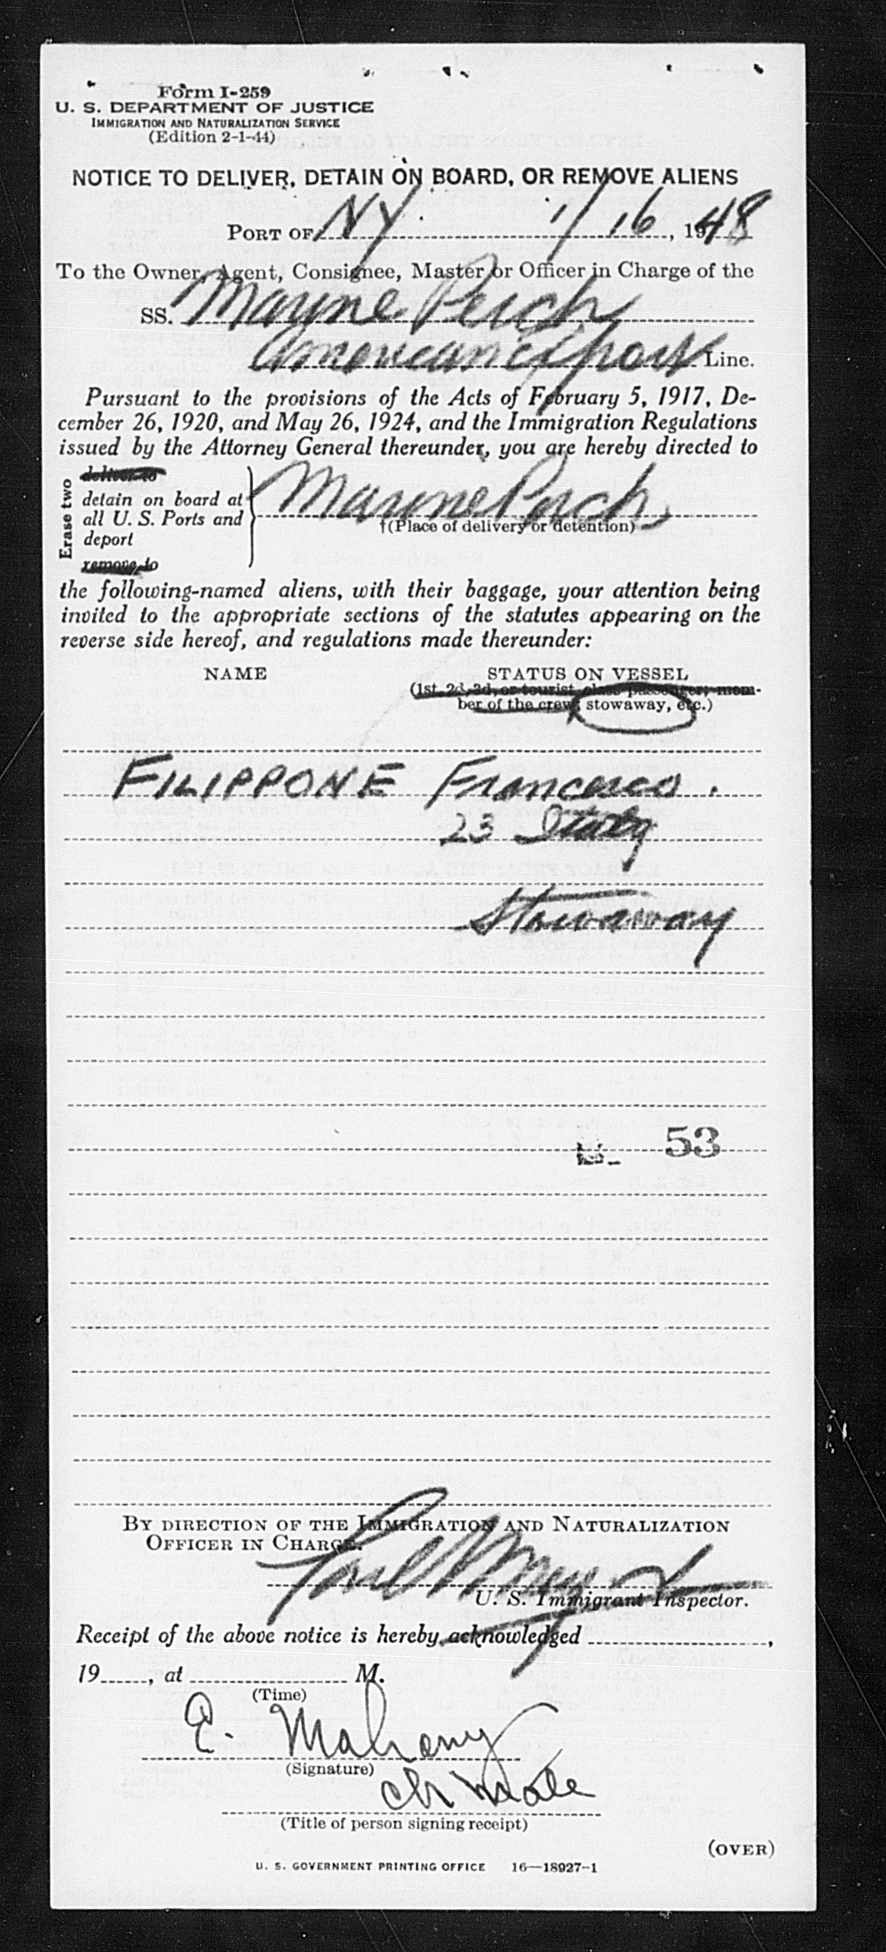 Form I-259
U. S. DEPARTMENT OF JUSTICE
IMMIGRATION AND NATURALIZATION SERVICE
(Edition 2-1-44)
NOTICE TO DELIVER, DETAIN ON BOARD, OR REMOVE ALIENS
PORT OF NY. 1/16, 1948
To the Owner, Agent, Consignee, Master or Officer in Charge of the
SS. Marine Perch
American Export Line.
Pursuant to the provisions of the Acts of February 5, 1917, De-
cember 26, 1920, and May 26, 1924, and the Immigration Regulations
issued by the Attorney General thereunder, you are hereby directed to
Erase two
deliver to
detain on board at
all U. S. Ports and
deport
remove to
Marine Perch
†(Place of delivery or detention)
the following-named aliens, with their baggage, your attention being
invited to the appropriate sections of the statutes appearing on the
reverse side hereof, and regulations made thereunder:
NAME STATUS ON VESSEL
(1st, 2d, 3d, or tourist class passenger; mem-
ber of the crew, stowaway, etc.)
FILIPPONE Francesco.
23 Italy
Stowaway
53
BY DIRECTION OF THE IMMIGRATION AND NATURALIZATION
OFFICER IN CHARGE.
U. S. Immigrant Inspector.
Receipt of the above notice is hereby acknowledged ,
19 , at M.
(Time)
E. Mahony
(Signature)
ch mate
(Title of person signing receipt)
(OVER)
U. S. GOVERNMENT PRINTING OFFICE 16—18927-1